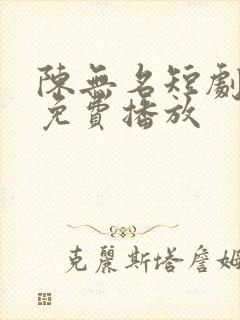 陳無名短劇
免費播放
克麗斯塔詹姆